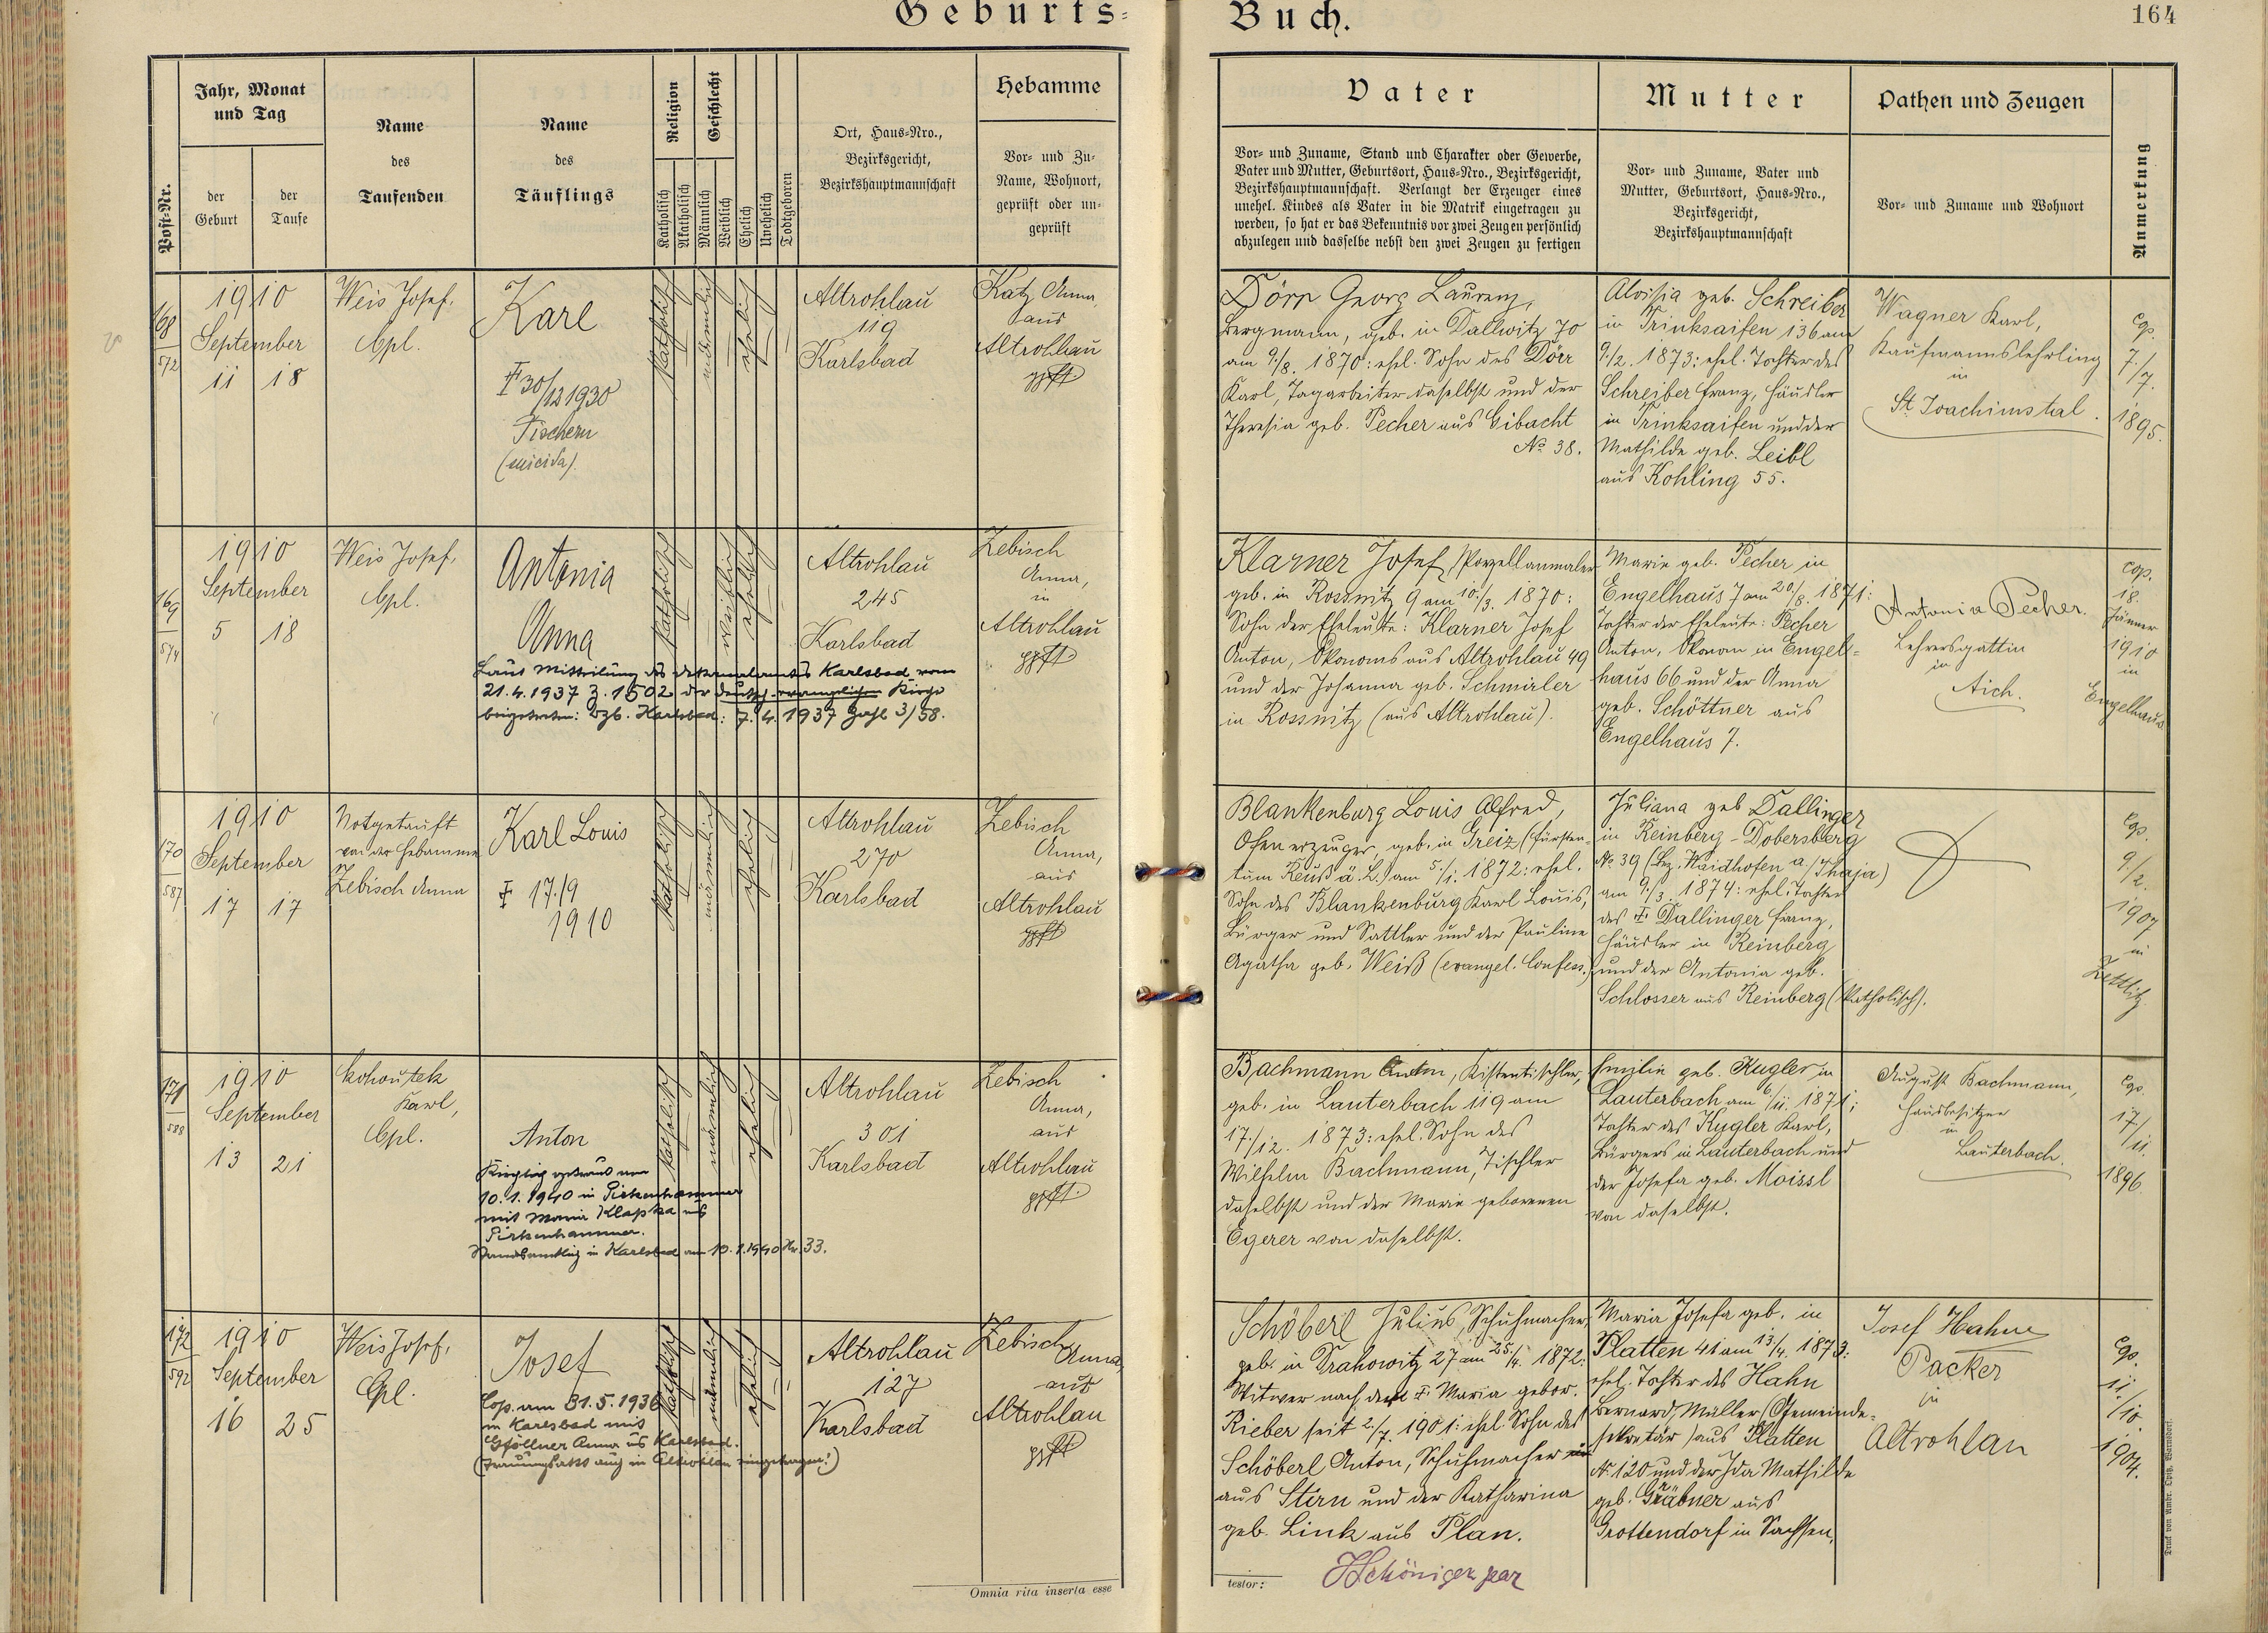 Geburts-
Buch.
164
Post-Nr.
Jahr, Monat
und Tag
der
Geburt
der
Taufe
Name
des
Taufenden
Name
des
Täuflings
Religion
Katholisch
Akatholisch
Geschlecht
Männlich
Weiblich
Ehelich
Unehelich
Todtgeboren
Ort, Haus-Nro.,
Bezirksgericht,
Bezirkshauptmannschaft
Hebamme
Vor- und Zu-
Name, Wohnort,
geprüft oder un-
geprüft
Vater
Vor- und Zuname, Stand und Charakter oder Gewerbe,
Vater und Mutter, Geburtsort, Haus-Nro., Bezirksgericht,
Bezirkshauptmannschaft. Verlangt der Erzeuger eines
unehel. Kindes als Vater in die Matrik eingetragen zu
werden, so hat er das Bekenntnis vor zwei Zeugen persönlich
abzulegen und dasselbe nebst den zwei Zeugen zu fertigen
Mutter
Vor- und Zuname, Vater und
Mutter, Geburtsort, Haus-Nro.,
Bezirksgericht,
Bezirkshauptmannschaft
Pathen und Zeugen
Vor- und Zuname und Wohnort
Anmerkung
168
572
1910
September
11 18
Weis Josef,
Cpl.
Karl
† 30/12 1930
Fischern
(suicida).
katholisch
männlich
ehelich
Altrohlau
119
Karlsbad
Katz Anna,
aus
Altrohlau
gpft.
Dörr Georg Laurenz,
Bergmann, geb. in Dallwitz 70
am 9./8. 1870: ehel. Sohn des Dörr
Karl, Tagarbeiter daselbst und der
Theresia geb. Pecher aus Eibacht
No 38.
Aloisia geb. Schreiber
in Trinksaifen 136 am
9./2. 1873: ehel. Tochter des
Schreiber Franz, Häusler
in Trinksaifen und der
Mathilde geb. Leibl
aus Kohling 55.
Wagner Karl,
Kaufmannslehrling
in
St. Joachimstal.
cop.
7./7.
1895.
169
574
1910
September
5 18
Weis Josef,
Cpl.
Antonia
Anna
Laut Mitteilung des Dekanalamtes Karlsbad vom
21.4.1937 Z. 1502 der deutsch-evangelischen Kirche
beigetreten: Bzb. Karlsbad: 7.4.1937 Zahl 3/58.
katholisch
weiblich
ehelich
Altrohlau
245
Karlsbad
Zebisch
Anna,
in
Altrohlau
gpft.
Klarner Josef, Porzellanmaler
geb. in Rossnitz 9 am 10./3. 1870:
Sohn der Eheleute: Klarner Josef
Anton, Ökonoms aus Altrohlau 49
und der Johanna geb. Schmirler
in Rossnitz (aus Altrohlau).
Marie geb. Pecher in
Engelhaus 7 am 20/8. 1871:
Tochter der Eheleute: Pecher
Anton, Ökonom in Engel-
haus 66 und der Anna
geb. Schöttner aus
Engelhaus 7.
Antonia Pecher.
Lehrersgattin
in
Aich.
cop.
18.
Jänner
1910
in
Engelhaus
170
587
1910
September
17 17
Notgetauft
von der Hebamme
Zebisch Anna
Karl Louis
† 17./9
1910
katholisch
männlich
ehelich
Altrohlau
270
Karlsbad
Zebisch
Anna,
aus
Altrohlau
gpft.
Blankenburg Louis Alfred,
Ofenerzeuger, geb. in Greiz (Fürsten-
tum Reuß ä. L.) am 5./1. 1872: ehel.
Sohn des Blankenburg Karl Louis,
Bürger und Sattler und der Pauline
Agatha geb. Weiß (evangel. Confess.)
Juliana geb. Dallinger
in Reinberg-Dobersberg
No 39 (Bez. Waidhofen a./Thaja)
am 9./3. 1874: ehel. Tochter
des † Dallinger Franz,
Häusler in Reinberg
und der Antonia geb.
Schlosser aus Reinberg (katholisch).
cop.
9/2.
1907
in
Zettlitz.
171
588
1910
September
13 21
Kohoutek
Karl,
Cpl.
Anton
Kirchlich getraut am
10.1.1940 in Pirkenhammer
mit Maria Klapka aus
Pirkenhammer.
Standesamtlich in Karlsbad am 10.1.1940 Nr. 33.
katholisch
männlich
ehelich
Altrohlau
301
Karlsbad
Zebisch
Anna,
aus
Altrohlau
gpft.
Bachmann Anton, Kistentischler,
geb. in Lauterbach 119 am
17./12. 1873: ehel. Sohn des
Wilhelm Bachmann, Tischler
daselbst und der Marie geborenen
Egerer von daselbst.
Emilie geb. Kugler in
Lauterbach am 6/11. 1871;
Tochter des Kugler Karl,
Bürgers in Lauterbach und
der Josefa geb. Moissl
von daselbst.
August Bachmann,
Hausbesitzer
in
Lauterbach.
cop.
17/11.
1896
172
592
1910
September
16 25
Weis Josef,
Cpl.
Josef
Cop. am 31.5.1936
in Karlsbad mit
Gföllner Anna aus Karlsbad.
(Trauungsakt auch in Altrohlau eingetragen!)
katholisch
männlich
ehelich
Altrohlau
127
Karlsbad
Zebisch
Anna,
aus
Altrohlau
gpft
Schöberl Julius, Schuhmacher,
geb. in Drahowitz 27 am 25./4. 1872:
Witwer nach der † Maria gebor.
Rieber seit 2./7. 1901: ehel. Sohn des
Schöberl Anton, Schuhmacher
aus Stern und der Katharina
geb. Link aus Plan.
Maria Josefa geb. in
Platten 41 am 13./4. 1873:
ehel. Tochter des Hahn
Bernard, Müller (Gemeinde-
sekretär) aus Platten
No 120 und der Ida Mathilde
geb. Gräbner aus
Grottendorf in Sachsen.
Josef Hahn
Packer
in
Altrohlau
cop.
11/10
1904.
Omnia rita inserta esse
testor:
Druck von Ambr. Opitz, Warnsdorf.